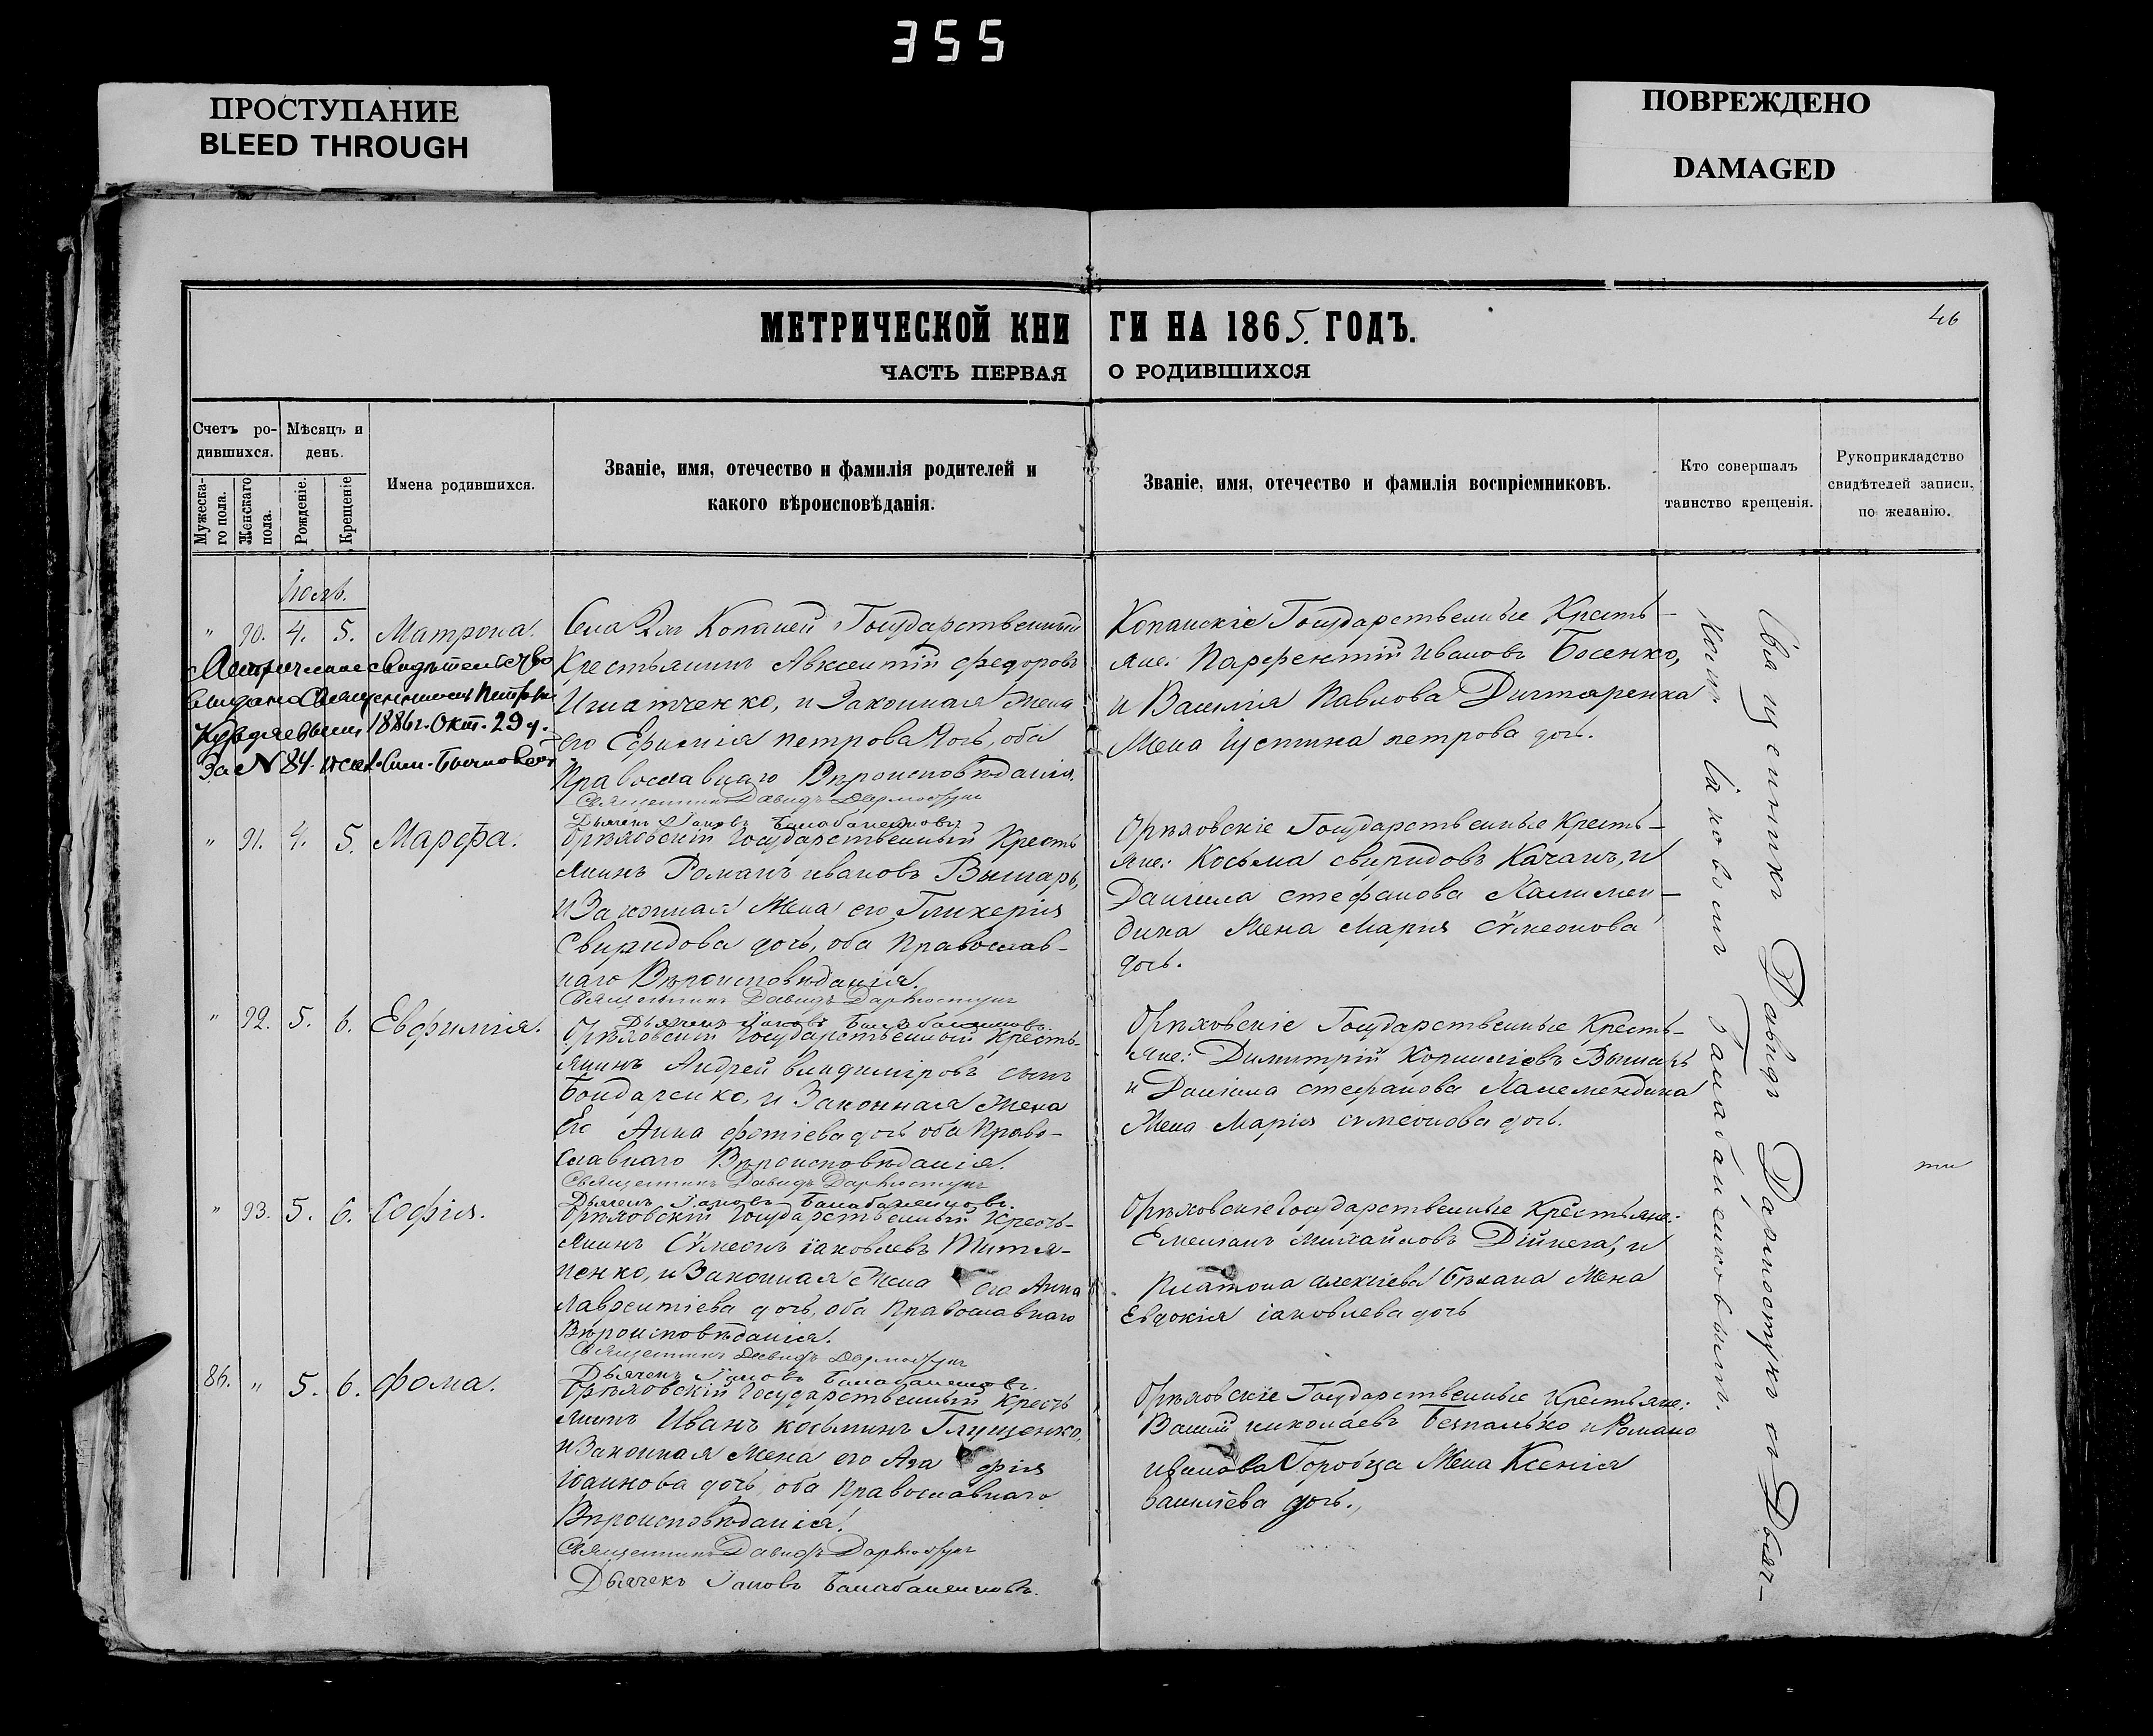 355
ПРОСТУПАНИЕ
BLEED THROUGH
ПОВРЕЖДЕНО
DAMAGED
МЕТРИЧЕСКОЙ КНИ
ГИ НА 1865. ГОДЪ.
46
ЧАСТЬ ПЕРВАЯ
О РОДИВШИХСЯ
Счетъ ро-
дившихся.
Мѣсяцъ и
день.
Мужеска-
го пола.
Женскаго
пола.
Рожденіе.
Крещеніе
Имена родившихся.
Званіе, имя, отечество и фамилія родителей и
какого вѣроисповѣданія.
Званіе, имя, отечество и фамилія воспріемниковъ.
Кто совершалъ
таинство крещенія.
Рукоприкладство
свидѣтелей записи,
по желанію.
" 90. 4. 5. Матрона.
Села Копаней Государственный
Крестьянинъ Авксентій Федоровъ
Игнатченко, и Законная Жена
его Ефимія петрова дочь, оба
Православнаго Вѣроисповѣданія.
Священникъ Давидъ
Дьячекъ Іаковъ
Метрическое свидѣтельство
выдано Священникомъ Петромъ
1886 г. Окт. 29 д.
За № 84.
Копанскіе Государственные Кресть-
яне: Парфентій Ивановъ Босенко,
и Василія Павлова Дигтяренка
Жена Іустина петрова дочь.
" 91. 4. 5. Марфа.
Орѣховскій Государственный Кресть
янинъ Романъ ивановъ Вышарь,
и Законная Жена его Гликерія
Свиридова дочь, оба Православ-
наго Вѣроисповѣданія.
Священникъ Давидъ Дармостукъ
Дьячекъ Іаковъ Балабаненковъ.
Орѣховскіе Государственные Кресть-
яне: Косьма свиридовъ Качанъ, и
Даніила стефанова Калимен-
дика Жена Марія сѵмеонова
дочь.
" 92. 5. 6. Евфимія.
Орѣховскій Государственный Кресть-
янинъ Андрей владиміровъ сынъ
Бондаренко, и Законная Жена
Его Анна фотіева дочь оба Право-
славнаго Вѣроисповѣданія.
Священникъ Давидъ Дармостукъ
Дьячекъ Іаковъ Балабаненковъ.
Орѣховскіе Государственные Кресть-
яне: Димитрій Корниліевъ Вышарь
и Даніила стефанова
Жена Марія сѵмеонова дочь.
" 93. 5. 6. Софія.
Орѣховскій Государственный Кресть-
янинъ Сѵмеонъ іаковлевъ Титя-
ненко, и Законная Жена его Анна
лаврентіева дочь, оба Православнаго
Вѣроисповѣданія.
Священникъ Давидъ Дармостукъ
Дьячекъ Іаковъ Балабаненковъ.
Орѣховскіе Государственные Крестьяне:
Емеліанъ михайловъ Дійнега, и
Платона алексіева Бѣлана Жена
Евдокія іаковлева дочь
86. " 5. 6. Фома.
Орѣховскій Государственный Кресть
янинъ Иванъ косьминъ Глущенко,
и Законная Жена его Ага фія
іоаннова дочь, оба Православнаго
Вѣроисповѣданія.
Священникъ Давидъ Дармостукъ
Дьячекъ Іаковъ Балабаненковъ.
Орѣховскіе Государственные Крестьяне:
Василій николаевъ Безпалько и Романа
иванова Горобца Жена Ксенія
василіева дочь.
Священникъ Давидъ Дармостукъ съ Дьяч-
комъ Іаковомъ Балабаненковымъ.